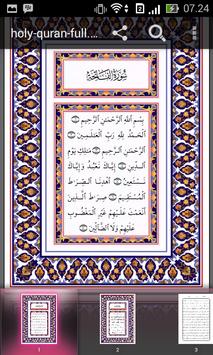 07.24
holy-quran-full....
سُورَةُ الفَاتِحَةِ
بِسْمِ ٱللَّهِ ٱلرَّحْمَٰنِ ٱلرَّحِيمِ
ٱلْحَمْدُ لِلَّهِ رَبِّ ٱلْعَٰلَمِينَ
ٱلرَّحْمَٰنِ ٱلرَّحِيمِ مَٰلِكِ
يَوْمِ ٱلدِّينِ إِيَّاكَ نَعْبُدُ وَإِيَّاكَ
نَسْتَعِينُ ٱهْدِنَا ٱلصِّرَٰطَ
ٱلْمُسْتَقِيمَ صِرَٰطَ ٱلَّذِينَ
أَنْعَمْتَ عَلَيْهِمْ غَيْرِ ٱلْمَغْضُوبِ
عَلَيْهِمْ وَلَا ٱلضَّآلِّينَ
1 2 3